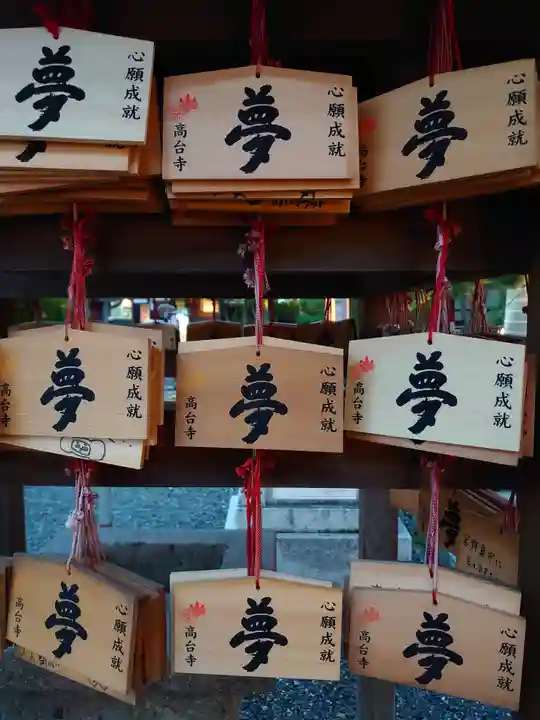 心願成就
夢
心願成就
夢
高台寺
心願成就
夢
心願成就
夢
高台寺
心願成就
夢
心願成就
夢
高台寺
心願成就
夢
高台寺
心願成就
夢
高台寺
心願成就
夢
高台寺
夢